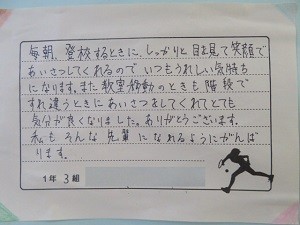 毎朝、登校するときに、しっかりと目を見て笑顔で
あいさつしてくれるのでいつもうれしい気持ち
になります。また教室移動のときも階段で
すれ違うときにあいさつをしてくれてとても
気分が良くなりました。ありがとうございます。
私もそんな先輩になれるようにがんば
ります。
1年 3組